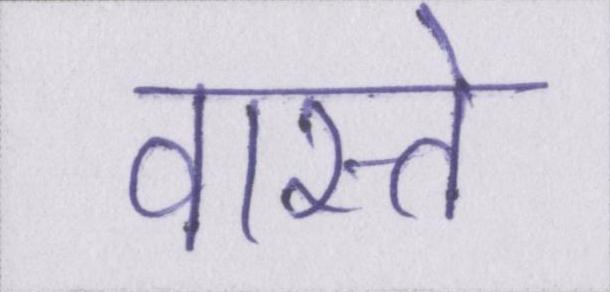 वास्ते